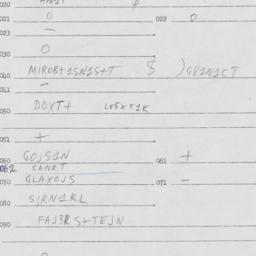 020
021 0 022 0
023 —
030 0
040 MIROBT1SN1S+T $ )GR1N1CT
041 —
050 DOXT+ LOSXT1K
051 +
060 GOJS1N 061 +
062 CANKT
070 GLAXOJS 071 —
080 SJRN1KL
090 FAJ3RS+TEJN